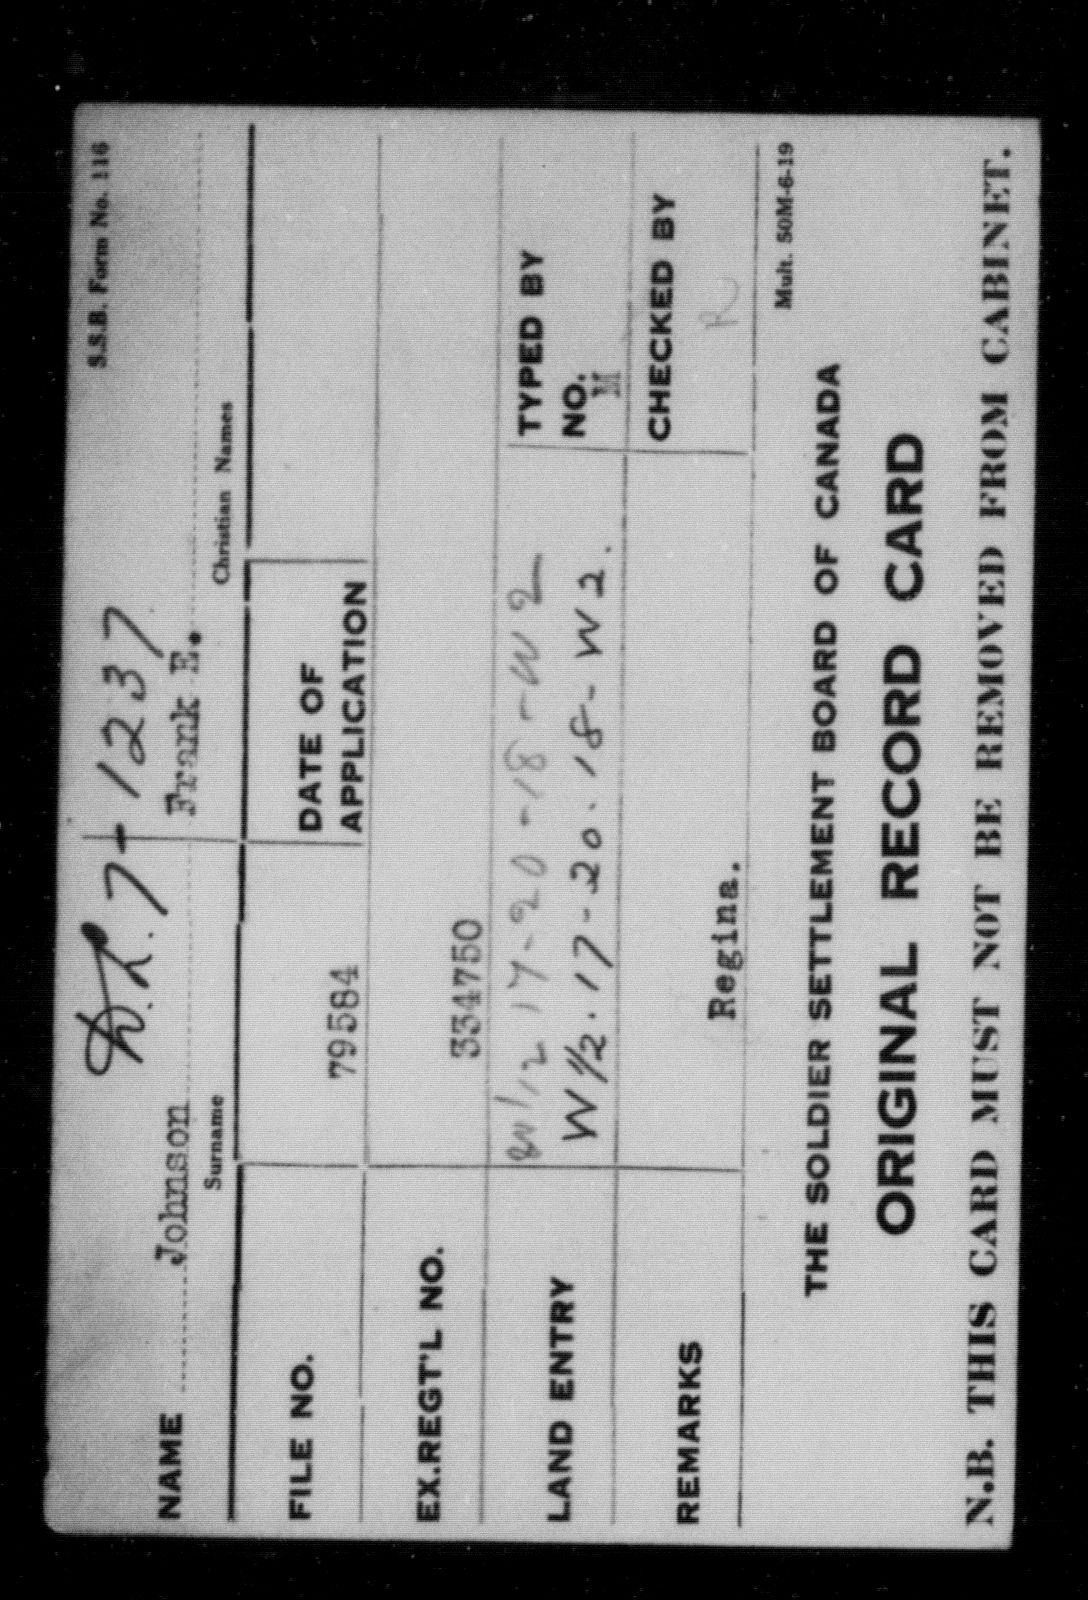 S.S.B. Form No. 116
D.L. 7-1237
NAME Johnson Frank E.
Surname Christian Names
FILE NO. 79584 DATE OF APPLICATION
EX.REGT'L NO. 334750
LAND ENTRY W 1/2 17-20-18-W2
W 1/2. 17-20.18-W2.
TYPED BY
NO. M
REMARKS Regina.
CHECKED BY
R
Mult. 50M-6-19
THE SOLDIER SETTLEMENT BOARD OF CANADA
ORIGINAL RECORD CARD
N.B. THIS CARD MUST NOT BE REMOVED FROM CABINET.